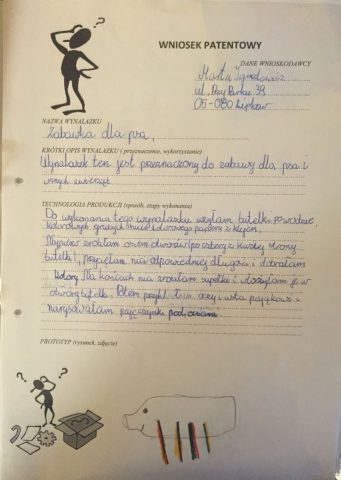 WNIOSEK PATENTOWY
DANE WNIOSKODAWCY
Marta
ul. Przy Parku 39
05-080
NAZWA WYNALAZKU
Zabawka dla psa.
KRÓTKI OPIS WYNALAZKU ( przeznaczenie, wykorzystanie)
Wynalazek ten jest przeznaczony do zabawy dla psa i
innych zwierząt.
TECHNOLOGIA PRODUKCJI (sposób, etapy wykonania)
Do wykonania tego wynalazku użyłam butelki po wodzie,
kolorowych kolorowego papieru z klejem.
Najpierw zrobiłam osiem otworów (po cztery z każdej strony
butelki), odpowiedniej długości i dobrałam
kolory. Na końcach zrobiłam supełki i włożyłam je w
otwory butelki. Potem oczy i usta pajączkowi i
narysowałam pajęczynki pod oczami.
PROTOTYP (rysunek, zdjęcie)